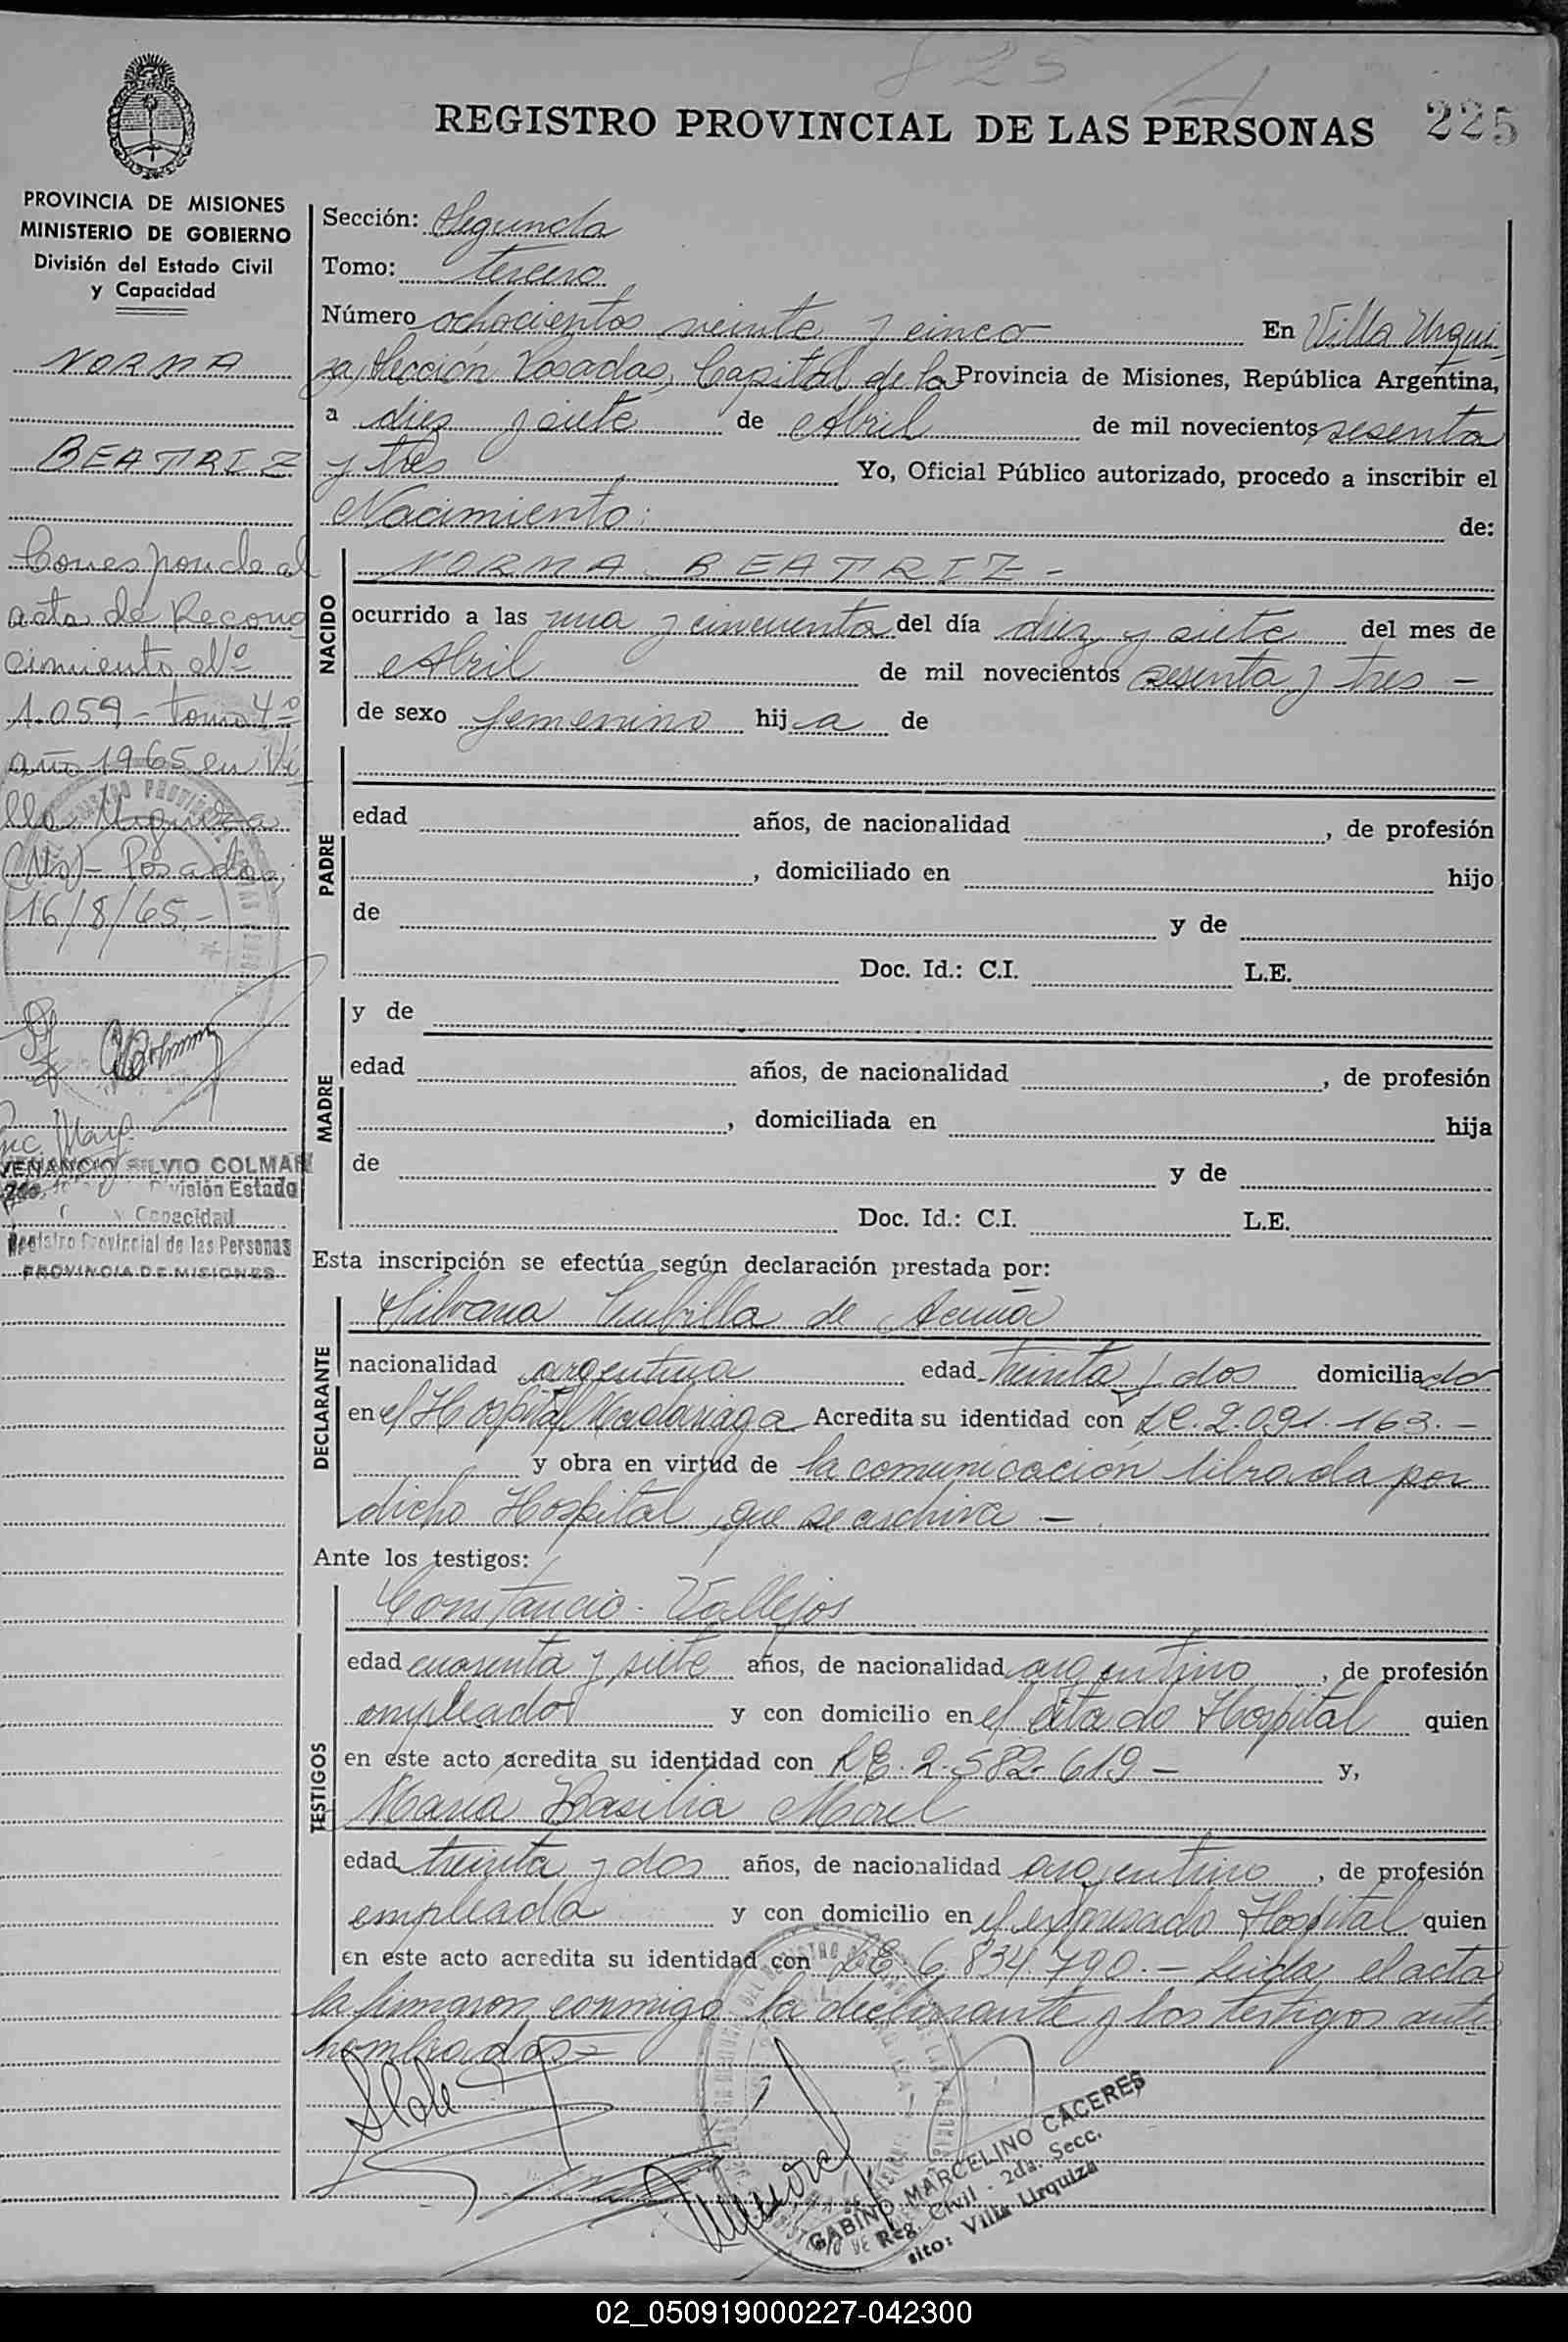 825
REGISTRO PROVINCIAL DE LAS PERSONAS 225
PROVINCIA DE MISIONES
MINISTERIO DE GOBIERNO
División del Estado Civil
y Capacidad
NORMA
BEATRIZ
Corresponde al
acta de Recono
cimiento Nº
1.059 - tomo 4º
año 1965 en Vi
lla Urquiza
(Ms) - Posadas,
16/8/65.-
VENANCIO SILVIO COLMAN
División Estado
y Capacidad
Registro Provincial de las Personas
PROVINCIA DE MISIONES
Sección: Segunda
Tomo: tercero
Número ochocientos veinte y cinco En Villa Urqui-
za, Sección Posadas, Capital de la Provincia de Misiones, República Argentina,
a diez y siete de Abril de mil novecientos sesenta
y tres Yo, Oficial Público autorizado, procedo a inscribir el
Nacimiento: de:
NACIDO
NORMA BEATRIZ -
ocurrido a las una y cincuenta del día diez y siete del mes de
Abril de mil novecientos sesenta y tres -
de sexo femenino hij a de
PADRE
edad años, de nacionalidad , de profesión
, domiciliado en hijo
de y de
Doc. Id.: C.I. L.E.
MADRE
y de
edad años, de nacionalidad , de profesión
, domiciliada en hija
de y de
Doc. Id.: C.I. L.E.
Esta inscripción se efectúa según declaración prestada por:
DECLARANTE
Silvana Cubilla de Acuña
nacionalidad argentina edad treinta y dos domicilia da
en el Hospital Madariaga Acredita su identidad con LC. 2.091.163.-
y obra en virtud de la comunicación librada por
dicho Hospital, que se archiva -
Ante los testigos:
TESTIGOS
Constancio Vallejos
edad cuarenta y siete años, de nacionalidad argentino , de profesión
empleado y con domicilio en el citado Hospital quien
en este acto acredita su identidad con LE. 2.582.619 - y,
Maria Basilia Morel
edad treinta y dos años, de nacionalidad argentino , de profesión
empleada y con domicilio en el expresado Hospital quien
en este acto acredita su identidad con LE 6.834.790.- Leida el acta
la firmaron conmigo la declarante y los testigos ante
nombrados =
GABINO MARCELINO CACERES
Reg. Civil - 2da. Secc.
sito: Villa Urquiza
02_050919000227-042300